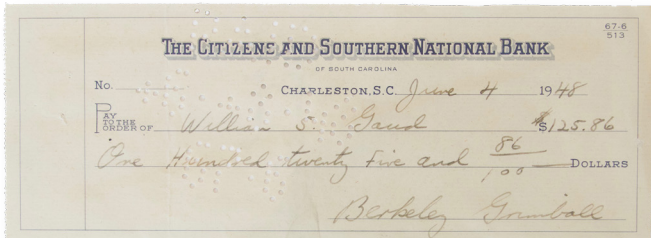 67-6
513
THE CITIZENS AND SOUTHERN NATIONAL BANK
OF SOUTH CAROLINA
No. CHARLESTON, S.C. June 4 1948
PAY TO THE ORDER OF William S. Gaud $125.86
One Hundred twenty Five and 86/100 DOLLARS
Berkeley Grimball